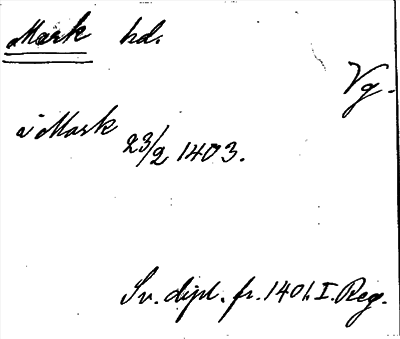 Mark hd.
Vg.
i Mark 23/2 1403.
Sv. dipl. fr. 1401. I. Reg.